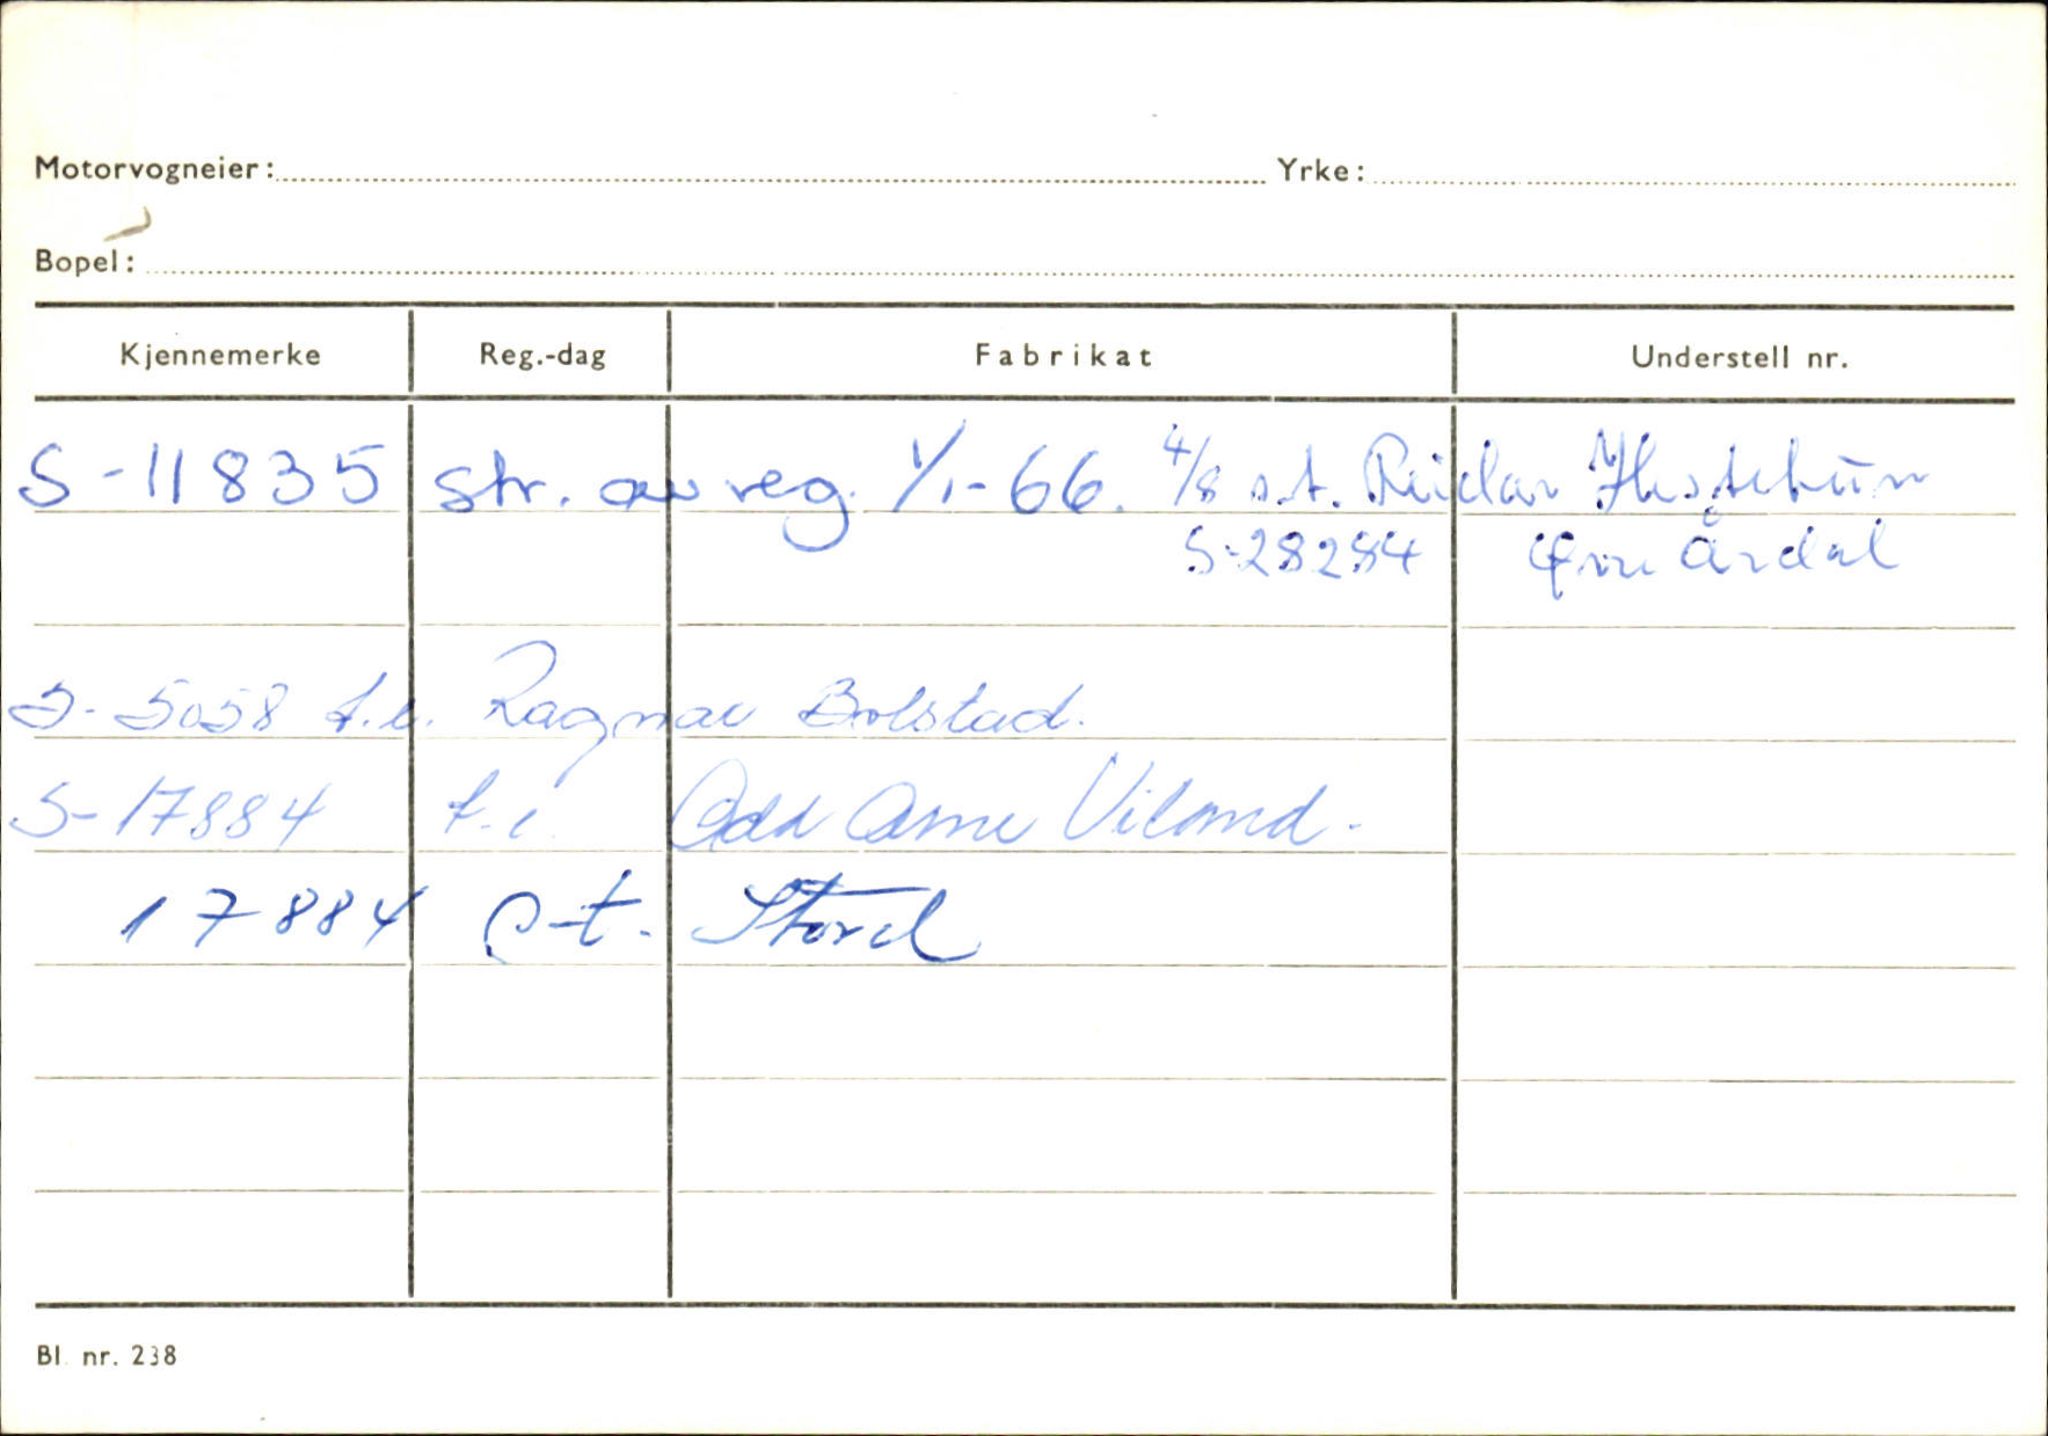 Motorvogneier: Yrke:
Bopel:
Kjennemerke Reg.-dag Fabrikat Understell nr.
S-11835 str. av reg. 1/1-66. 4/8 s.t. Reidar Hestetun
S-28284 Øvre Årdal
S-5058 t.e. Ragnar Bolstad.
S-17884 t.e. Odd Arne Viland.
17884 o-t. Stord
Bl. nr. 238